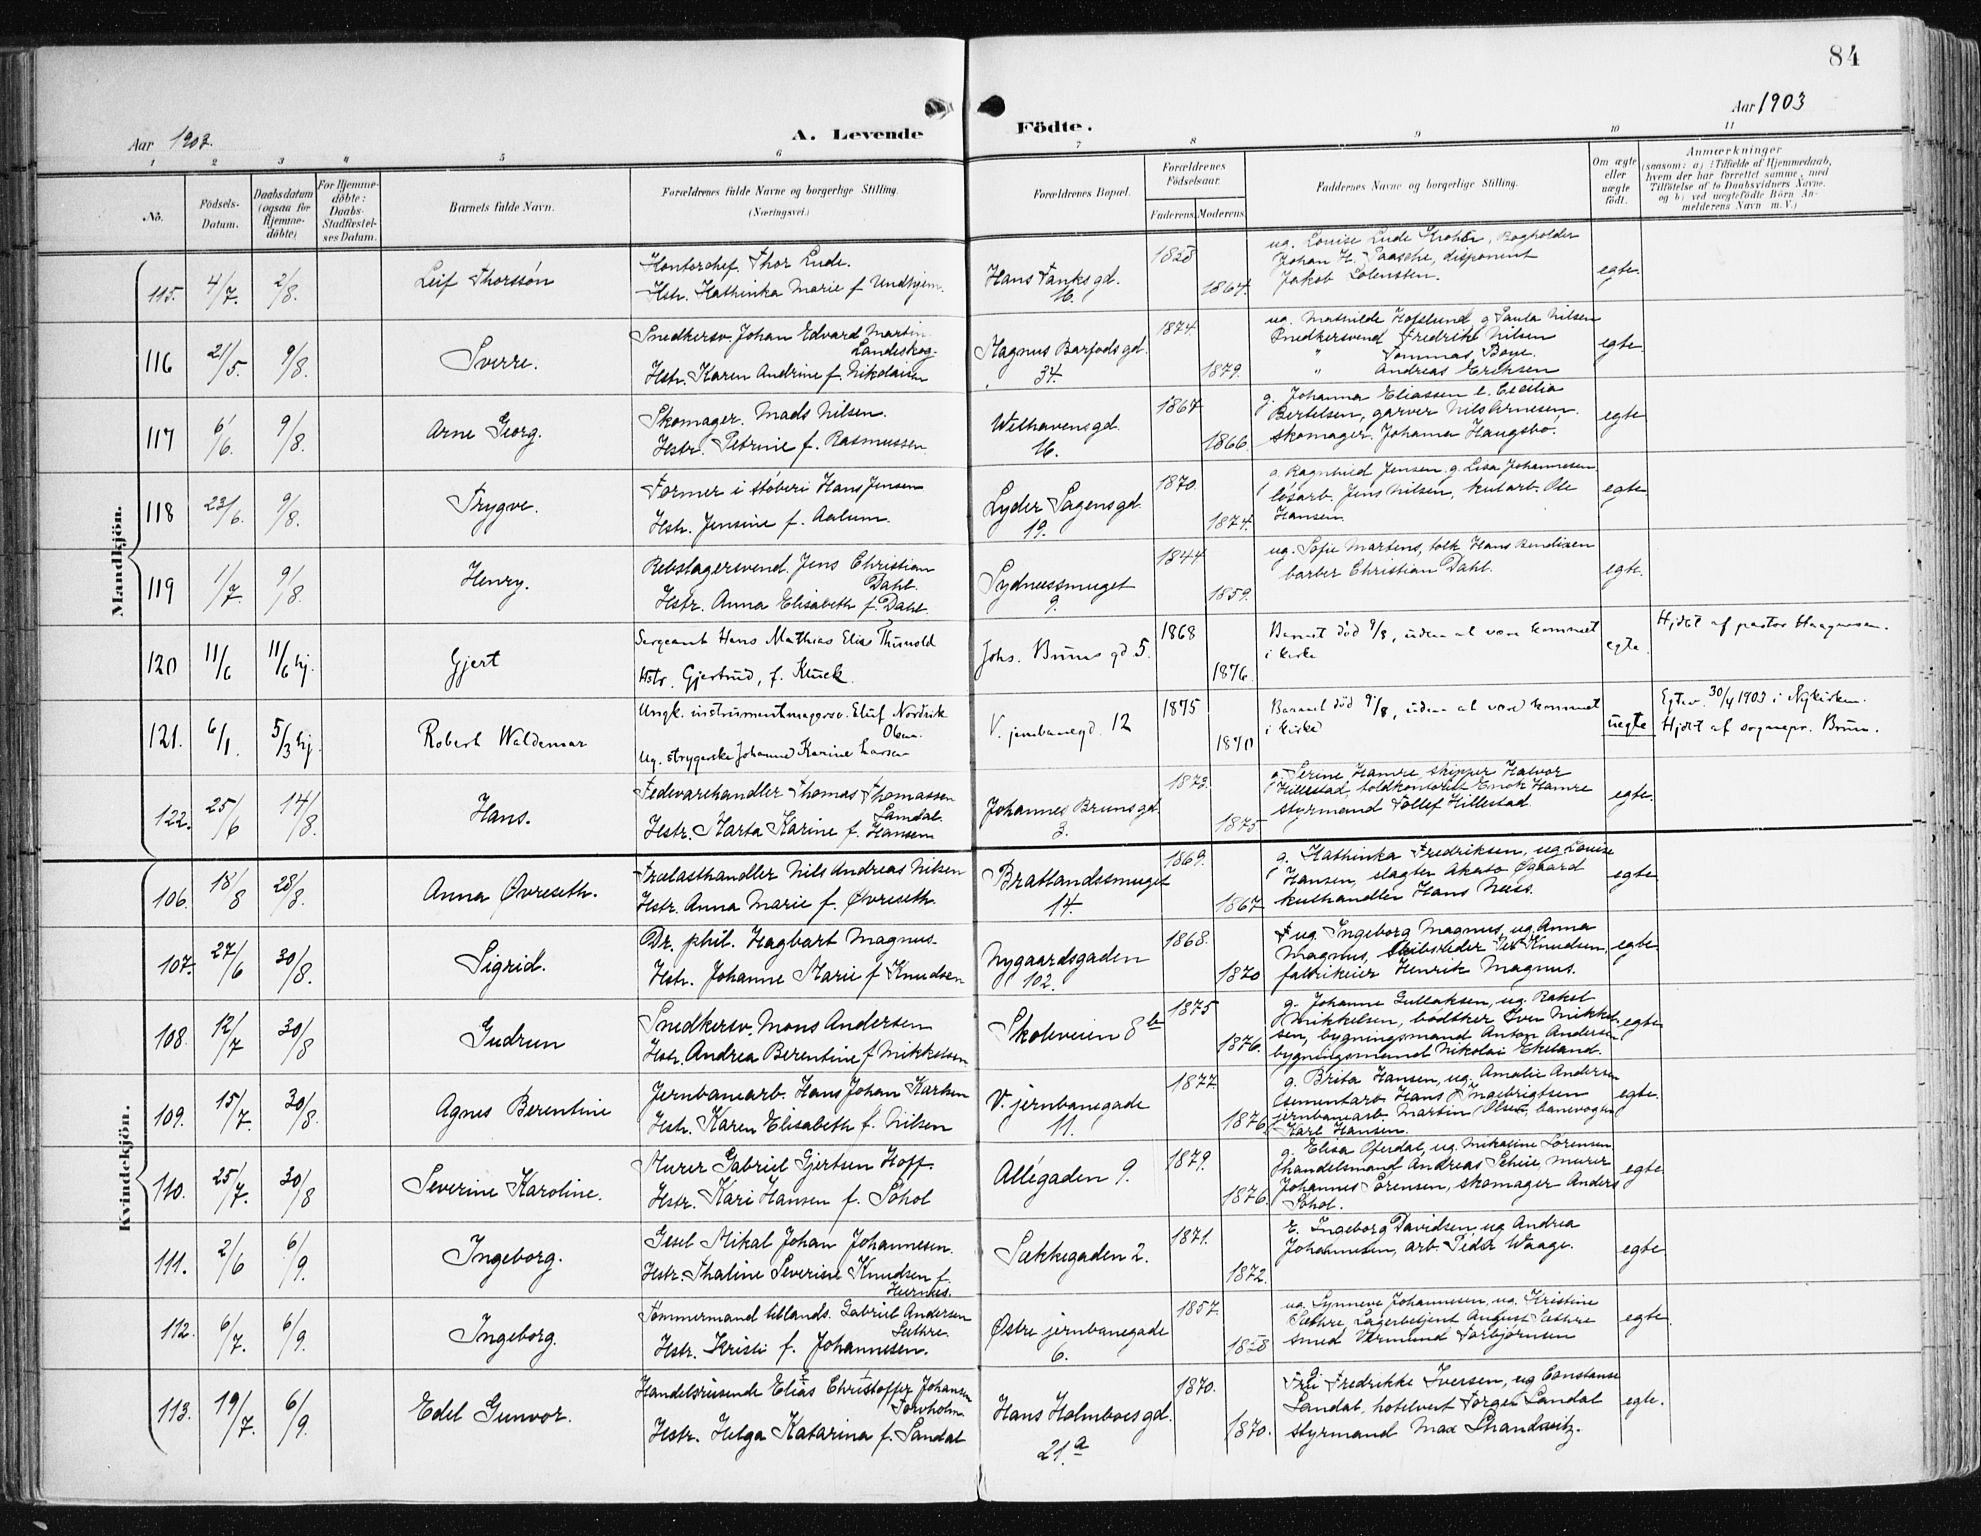 84
Aar 1903.
A. Levende
Födte.
Aar 1903
1 2 3 4 5 6 7 8 9 10 11
No.
Födsels-Datum.
Daabsdatum (ogsaa for Hjemme-döbte)
For Hjemme-döbte: Daabs-Stadfæstel-ses Datum.
Barnets fulde Navn.
Forældrenes fulde Navne og borgerlige Stilling. (Næringsvei.)
Forældrenes Bopæl.
Forældrenes Födselsaar.
Faderens. Moderens.
Faddernes Navne og borgerlige Stilling.
Om ægte eller uægte födt.
Anmærkninger
(saasom: a) i Tilfælde af Hjemmedaab, hvem der har forrettet samme, med Tilföielse af to Daabsvidners Navne. og b) ved uægtefödte Börn An-melderens Navn m. V.)
Mandkjön.
115. 4/7. 2/8. Leif Thorssön
Kontorchef. Thor Lude.
Hstr. Kathinka Marie f. Undhjem.
Hans Tanks gd. 16.
1864.
Johan H. Paasche, disponent
Jakob
egte.
116 21/5. 9/8. Sverre.
Snedkersv. Johan Edvard Martin Landeskog.
Hstr. Karen Andrine f. Nikolaisen
Magnus Barfods gd. 34.
1874. 1879.
ug. Mathilde Hofslund g. Paula Nilsen
Snedkersvend Fredrik Nilsen
" Tommas Boye.
" Andreas Eriksen
egte.
117 6/6. 9/8. Arne Georg.
Skomager. Mads Nilsen.
Hstr. Petrine f. Rasmussen
Welhavensgd. 16.
1867 1866.
g. Johanna Eliassen e. Cecilia
Bertelsen, garver Nils Arnesen,
skomager. Johannes Haugsbö.
egte
118 23/6. 9/8. Trygve.
Former i stöberi Hans Jensen
Hstr. Jensine f. Aalum.
Lyder Sagensgd 19.
1870. 1874.
g. Ragnhild Jensen. g. Lisa Johannesen
lösarb. Jens Nilsen, kularb. Ole
Hansen.
egte.
119 1/7. 9/8. Henry.
Rebslagersvend. Jens Christian Dahl.
Hstr. Anna Elisabeth f. Dahl.
Sydnessmuget 9.
1844 1859.
ug. Sofie Martens, tolk Hans Bendixen
barber Christian Dahl.
egte.
120 11/6 11/6 hj. Gjert
Sergeant Hans Mathias Elias Thunold
Hstr. Gjertrud, f. Kluck.
Johs. Bruns gd 5.
1868 1876.
Barnet död 9/8, uden at være kommet
i kirke
egte.
Hjdbt af pastor Haagensen.
121. 6/1. 5/3 hj. Robert Waldemar
Ungk. instrumentmagersv. Eluf Nordvik Olsen.
Ug. strygerske Johanne Karine Larsen
V. jernbanegd. 12
1875 1870
Barnet död 9/8, uden at være kommet
i kirke
uegte
Egtev. 30/4 1903 i Nykirken.
Hjdbt af sognepr. Brun.
122. 25/6 14/8. Hans.
Fedevarehandler Thomas Thomassen Samdal.
Hstr. Marta Karine f. Hansen
Johannes Brunsgd 3.
1873. 1875
g. Serine Hamre, skipper Halvor
Hillestad, toldkontorist Enok Hamre
styrmand Tollef Hillestad.
egte.
Kvindekjön.
106. 18/8 28/8. Anna Øvreseth.
Trælasthandler Nils Andreas Nilsen
Hstr. Anna Marie f. Øvreseth.
Bratlandssmuget 14.
1869. 1867.
g. Kathinka Fredriksen, ug. Louise
Hansen, slagter Akato Øgaard
kulhandler Hans Neess.
egte.
107. 27/6 30/8. Sigrid.
Dr. phil. Hagbart Magnus.
Hstr. Johanne Marie f Knudsen
Nygaardsgaden 102.
1868. 1870
ug. Ingeborg Magnus, ug. Anna
Magnus, skibsreder Knudsen,
fabrikeier Henrik Magnus.
egte
108. 12/7 30/8 Gudrun
Snedkersv. Mons Andersen
Hstr. Andrea Berentine f Mikkelsen
Skoleveien 8 b
1875 1876.
g. Johanne Gullaksen, ug. Rakel
Mikkelsen, bödtker Iver Mikkel-
sen, bygningsmand Anton Andersen
bygningsmand Nikolai Ekeland.
egte
109. 15/7. 30/8. Agnes Berentine
Jernbanearb. Hans Johan Karlsen
Hstr. Karen Elisabeth f. Nilsen
V. jernbanegade 11.
1877. 1876.
g. Brita Hansen, ug. Amalie Andersen
cementarb Hans Ingebrigtsen
jernbanearb Martin Olsen, banevogter
Karl Hansen.
egte.
110. 25/7. 30/8 Severine Karoline.
Murer Gabriel Gjertsen Hoff.
Hstr. Kari Hansen f. Söhol
Allégaden 9.
1879. 1876.
g. Elisa Oferdal, ug. Nikoline Sörensen
handelsmand Andreas Scheie, murer
Johannes Sörensen, skomager Anders
Söhol.
egte
111. 2/6 6/9. Ingeborg.
Gesel Mikal Johan Johannesen.
Hstr. Thaline Severine Knudsen f. Hernes.
Sækkegaden 2.
1871. 1872.
E. Ingeborg Davidsen, ug. Andrea
Johannesen, arb. Peder Waage.
egte
112. 6/7. 6/9. Ingeborg.
Tömmermand utlands. Gabriel Andersen Sæthre.
Hstr. Kristi f. Johannesen.
Østre jernbanegade 6.
1857. 1858
ug. Synneve Johannesen, ug. Kristine
Sæthre, Lagerbetjent August Sæthre
smed Vermund Torbjörnsen
egte.
113. 19/7. 6/9. Edel Gunvor.
Handelsreisende Elias Christoffer Johansen
Hstr. Helga Katarina f. Sandal
Hans Holmboes gd. 21.a
1870. 1870.
Fredrikke Iversen, ug. Constanse
Sandal, hotelvert Torger Sandal
styrmand Max
egte.